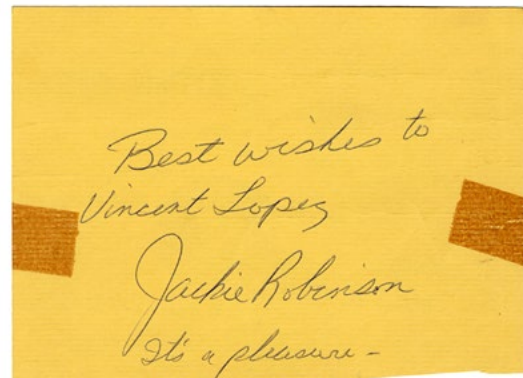 Best wishes to
Vincent Lopez
Jackie Robinson
It's a pleasure -